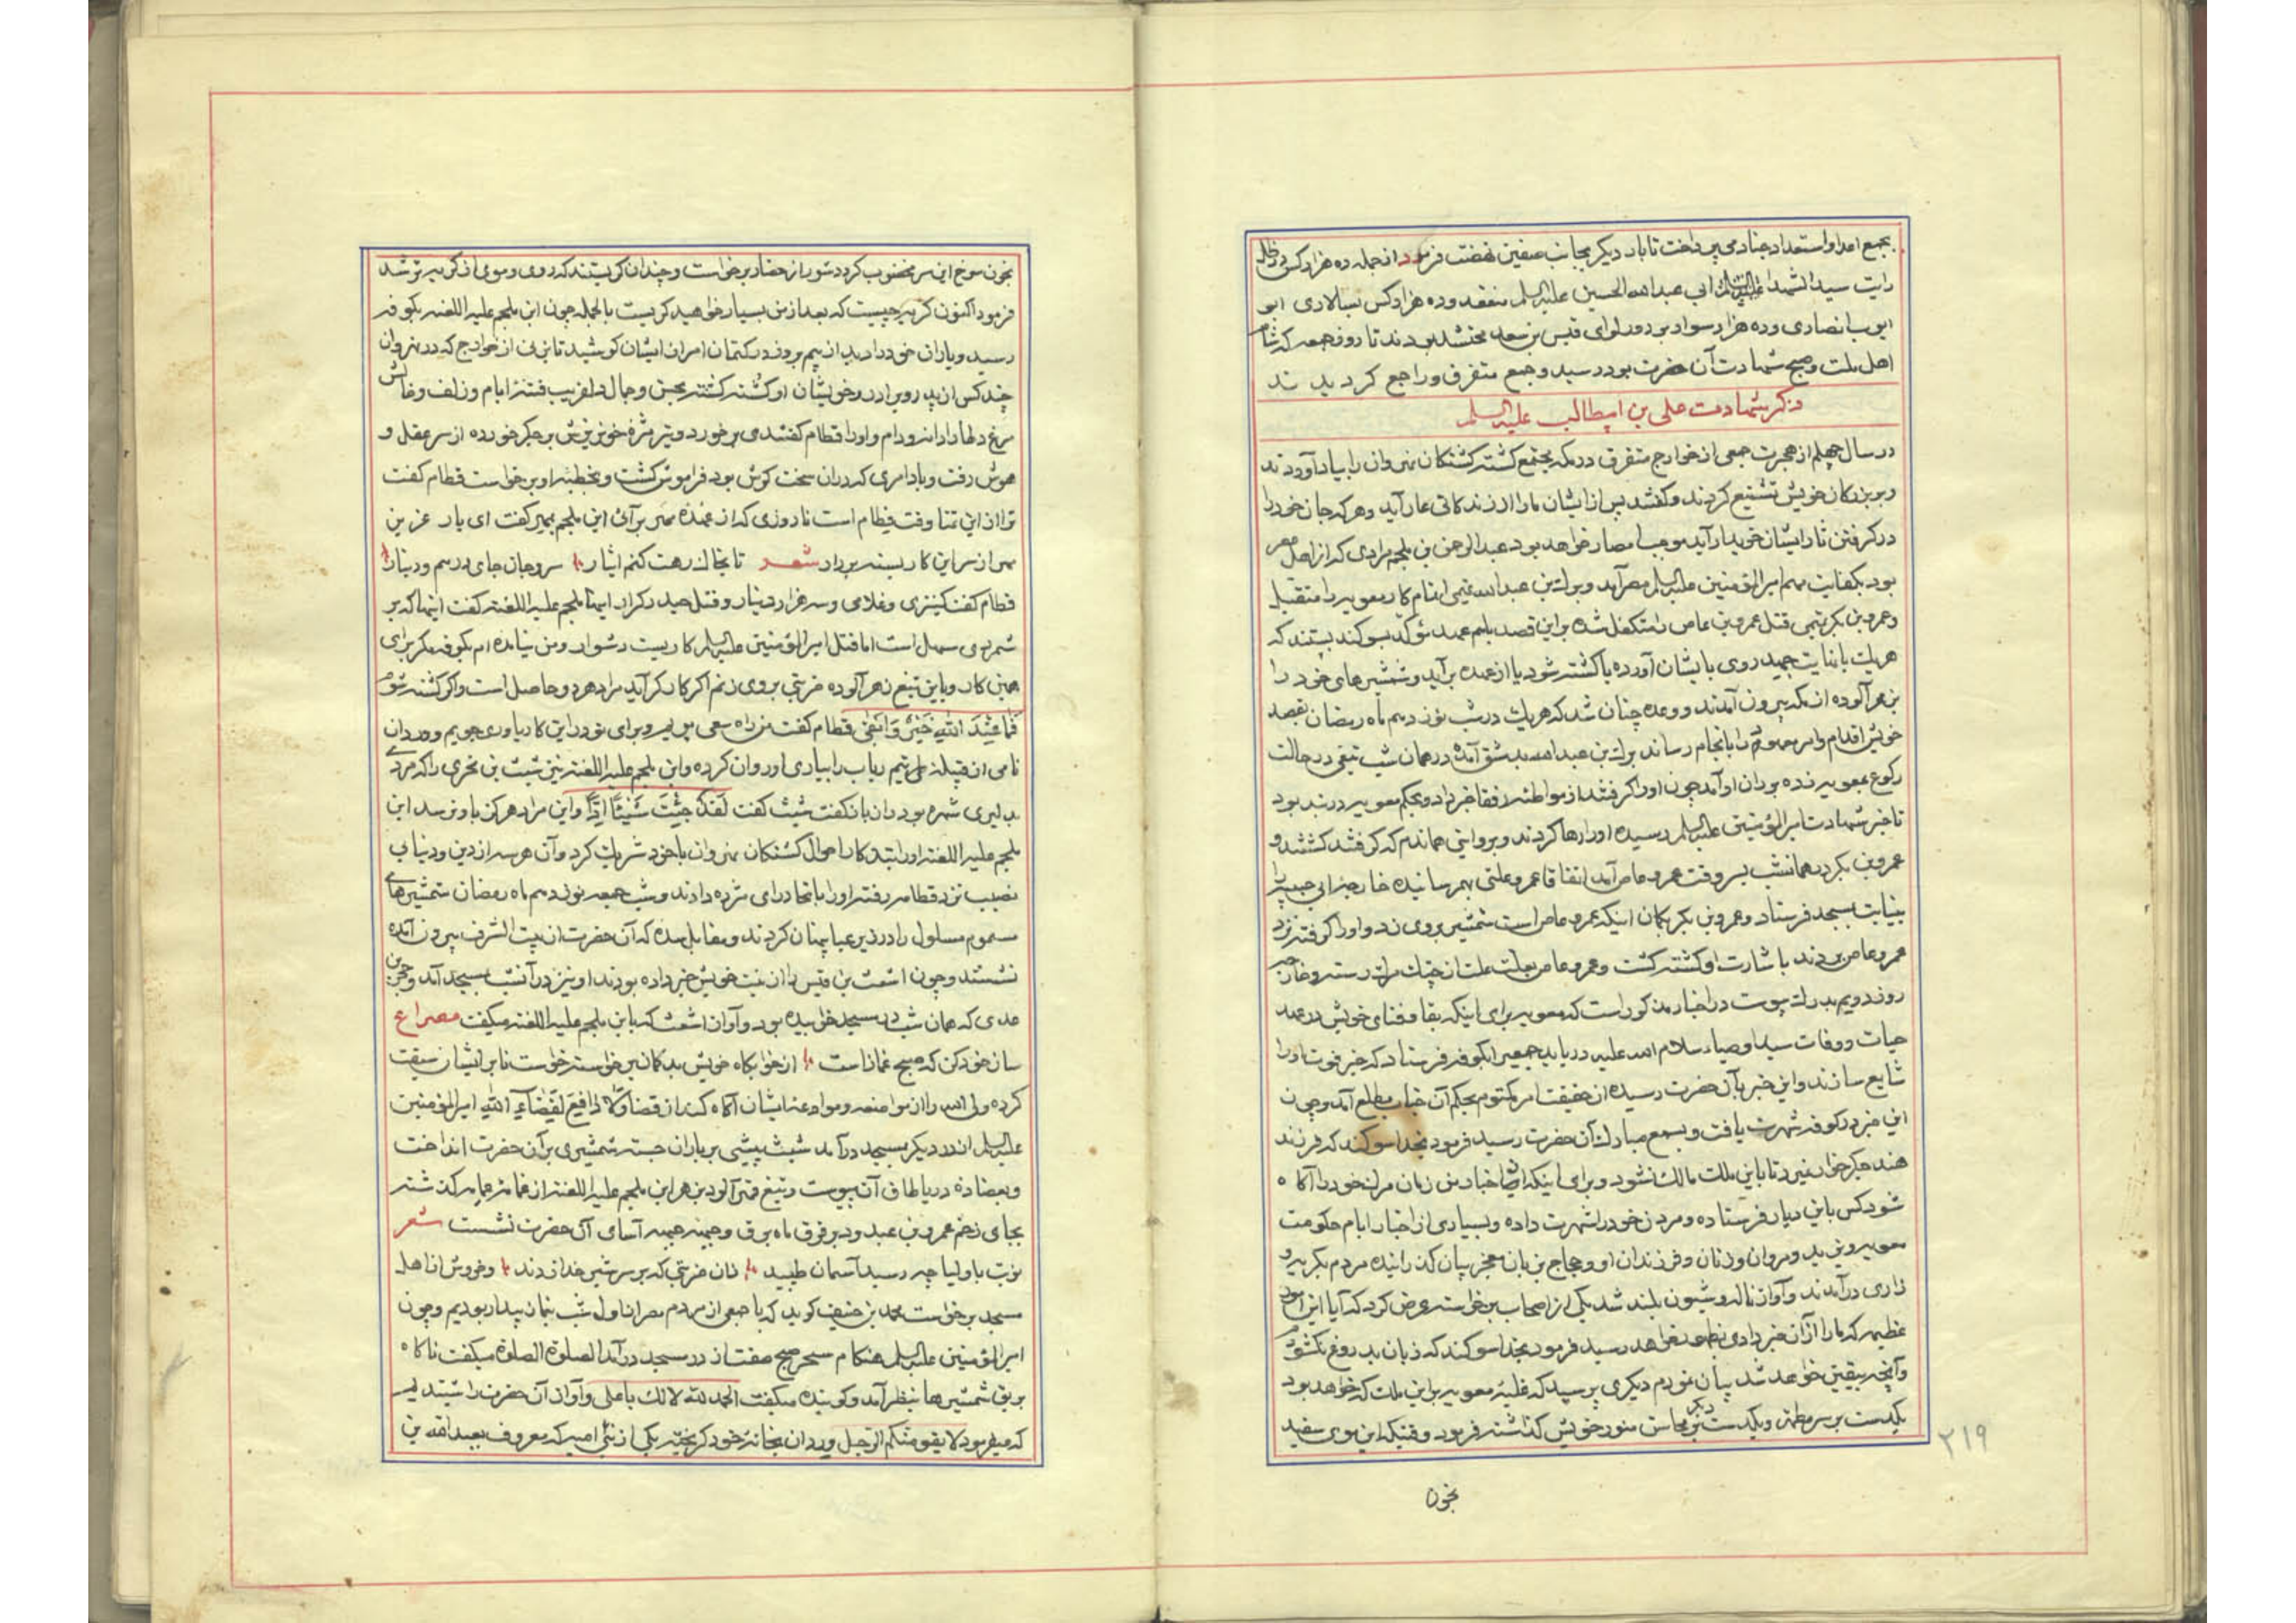 بجمع اعداد و استعداد جهاد می پرداخت تا بار دیگر بجانب صفین نهضت فرمود از جمله ده هزار کس در ظل
رایت سید الشهدا ابی عبدالله الحسین علیه السلم منعقد و ده هزار کس بسالاری ابو
ایوب انصاری و ده هزار سوار بود در لوای قیس بن سعد محتشد بودند تا روز جمعه که شام
اهل ملت و صبح شهادت آن حضرت بود در رسید و جمع متفرق و راجع کردیدند
ذکر شهادت علی بن ابیطالب علیه السلم
در سال چهلم از هجرت جمعی از خوارج متفرق در مکه مجتمع کشته کشتکان نهروان را بیاد آوردند
و بر بزرکان خویش تشنیع کردند و کفتند پس از ایشان ما را از زندکانی عار آید و هر که جان خود را
در کرفتن ثار ایشان خریدار آید موجب امصار خواهد بود عبدالرحمن بن ملجم مرادی که از اهل مصر
بود بکفایت مهم امیرالمؤمنین علیه السلم مصر آمد و برک بن عبدالله تمیمی اتمام کار معویه را متقبل
و عمرو بن بکر تمیمی قتل عمرو بن عاص را متکفل شده بر این قصد باهم عهد مؤکد بسوکند بستند که
هر یک بانیایت جمید روی بایشان آورده یا کشته شود یا از عهده برآید و شمشیرهای خود را
بزهر آلوده از مکه بیرون آمدند و وعده چنان شد که هر یک در شب نوزدهم ماه رمضان بقصد
خویش اقدام و امر معهود را بانجام رساند برک بن عبدالله بدمشق آمده در همان شب تیغی در حالت
رکوع بمعویه زده بر ران او آمد چون او را کرفتند از مواطئه رفقا خبر داد و بحکم معویه در بند بود
تا خبر شهادت امیرالمؤمنین علیه السلم رسیده او را رها کردند و بروایتی هماندم که کرفتند کشتند و
عمرو بن بکر در همانشب بسروقت عمرو عاص آمد اتفاقا عمرو علتی بهم رسانیده خارجة بن ابی حبیبه را
بنیابت بمسجد فرستاد و عمرو بن بکر بکمان اینکه عمرو عاص است شمشیر بروی زد و او را کرفته نزد
عمرو عاص بردند باشارت او کشته کشت و عمرو عاص بعلت علت از چنک مرک رسته و خارجه
روز دویم بدرک پیوست در اخبار مذکور است که معویه برای اینکه بقا و فنای خویش در عهد
حیات و وفات سید اوصیاء سلام الله علیه دریابد جمعی را بکوفه فرستاد که خبر فوت او را
شایع سازند و این خبر بآن حضرت رسیده از حقیقت امر مکتوم بحکم آن جناب مطلع آمد و چون
این خبر در کوفه شهرت یافت و بسمع مبارک آن حضرت رسید فرمود بخدا سوکند که فرزند
هند جکرخوار نمیرد تا باین ملت مالک نشود و برای اینکه ایضا اخبار من زمان مرک خود را آکاه
شود کس باین دیار فرستاده و مردن خود را شهرت داده و بسیاری از اخبار ایام حکومت
معویه و یزید و مروان و زنان و فرزندان او و حجاج بزبان معجز بیان کذرانیده مردم بکریه و
زاری درآمدند و آواز ناله و شیون بلند شد یکی از اصحاب برخاسته عرض کرد که آیا این امور
عظیمه که ما را از آن خبر دادی بظهور خواهد رسید فرمود بخدا سوکند که زبان بدروغ نکشودم
و آنچه بیقین خواهد شد بیان نمودم دیکری پرسید که غلبه معویه بر این ملت که خواهد بود
یکدست بر سر مطهر و یکدست دیکر بر محاسن منور خویش کذاشته فرمود وقتیکه این موی سفید
۲۱۹
بخون
بخون سرخ این سر مخضوب کردد شور از حضار برخواست و چندان کریستند که روی و موی از کریه تر شد
فرمود اکنون کریه چیست که بعد از من بسیار خواهید کریست بالجمله چون ابن ملجم علیه اللعنه بکوفه
رسید و یاران خود را دید از بیم بروز در کتمان امر از ایشان کوشید تا بزنی از خوارج که در نهروان
چند کس از پدر و برادر و خویشان او کشته کشته بحسن و جمال دلفریب فتنه ایام و زلف و خالش
مرغ دلها را دانه و دام و او را قطام کفتندی برخورد و تیر مژه خونریزش بر جکر خورده از سر عقل و
هوش رفت و یاد امری که در ان سخت کوش بود فراموش کشت و بخطبه او برخواست قطام کفت
ترا از این تمنا وقت فطام است تا روزی که از عهده مهر برآئی ابن ملجم مهر کفت ای یار عزیز
مهر از سر این کار بسته بردار شعر تا بخاک رهت کنم ایثار سر و جان جای درهم و دینار
قطام کفت کنیزی و غلامی و سه هزار دینار و قتل حیدر کرار ابن ملجم علیه اللعنه کفت اینها که بر
شمردی سهل است اما قتل امیرالمؤمنین علیه السلم کاریست دشوار و من نیامده ام بکوفه مکر برای
همین کار و باین تیغ زهر آلوده ضربتی بروی زنم اکر کارکر آید مراد هر دو حاصل است و اکر کشته شوم
فَمَا عِنْدَ اللهِ خَیْرٌ وَاَبْقی قطام کفت من راه سعی می پویم و برای تو در این کار یاوری جویم و وردان
نامی از قبیله تیم رباب را بیاری او روان کرده و ابن ملجم علیه اللعنه نیز شبث بن بحری را که مردی
بدلیری شهره بود ران بازکفت شبث کفت لَقَدْ جِئْتَ شَیْئاً اِدّاً و این مراد هرکز با و نرسد ابن
ملجم علیه اللعنه او را بتذکار احوال کشتکان نهروان با خود شریک کرد و آن هر سه از دین و دنیا بی
نصیب نزد قطامه رفته او را باتحاد رای مژده دادند و شب جمعه نوزدهم ماه رمضان شمشیرهای
مسموم مسلول را در زیر عبا پنهان کردند و مقابل سده که آن حضرت از بیت الشرف بیرون آمده
نشستند و چون اشعث بن قیس را از نیت خویش خبر داده بودند او نیز در آنشب بمسجد آمد و حجر بن
عدی که همان شب در مسجد خوابیده بود و آواز اشعث که با ابن ملجم علیه اللعنه میکفت مصراع
ساز خود کن که صبح غماز است از خوابکاه خویش بدکمان برخواسته خواست تا بر ایشان سبقت
کرده ولی الله را از مواضعه و مواعدۀ ایشان آکاه کند از قضا وَلا دافِعَ لِقَضاءِ اللهِ امیرالمؤمنین
علیه السلم از در دیکر بمسجد درآمد شبث پیشی بر یاران جسته شمشیری بر آن حضرت انداخت
و بعضاده در یا طاق آن پیوست و تیغ قهر آلود بزهر ابن ملجم علیه اللعنه از عمامه کذشته
بجای زخم عمرو بن عبدود بر فرق ماه برق و جبینه جبهه آسای آن حضرت نشست شعر
نوبت باولیا چه رسید آسمان طپید زان ضربتی که بر سر شیر خدا زدند و خروش از اهل
مسجد برخواست محمد بن حنیف کوید که با جمعی از مردم مصر از اول شب بنماز بیدار بودیم و چون
امیرالمؤمنین علیه السلم هنکام سحر در مسجد درآمد الصلوة الصلوة میکفت ناکاه
بریق شمشیرها بنظر آمد و کوینده میکفت الحکم لله لا لک یا علی و آواز آن حضرت را شنیدیم
که میفرمود لا یفوتنکم الرجل وردان بخانه خود کریخته یکی از بنی امیه که معروف بعبدالله بن